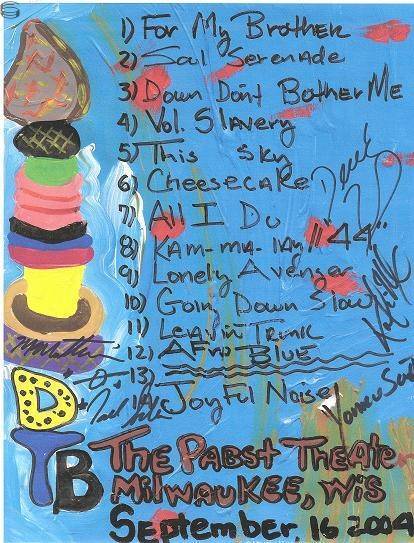 1) For My Brother
2) Soul Serenade
3) Down Dont Bother Me
4) Vol. Slavery
5) This Sky
6) Cheesecake
7) All I Do
8) KAM-MA-LAY "44"
9) Lonely Avenger
10) Goin Down Slow
11) Leavin Trunk
12) AFro BLUE
13)
14) JoyFul Noise
DTB
The Pabst Theater
Milwaukee, Wis
September, 16 2004